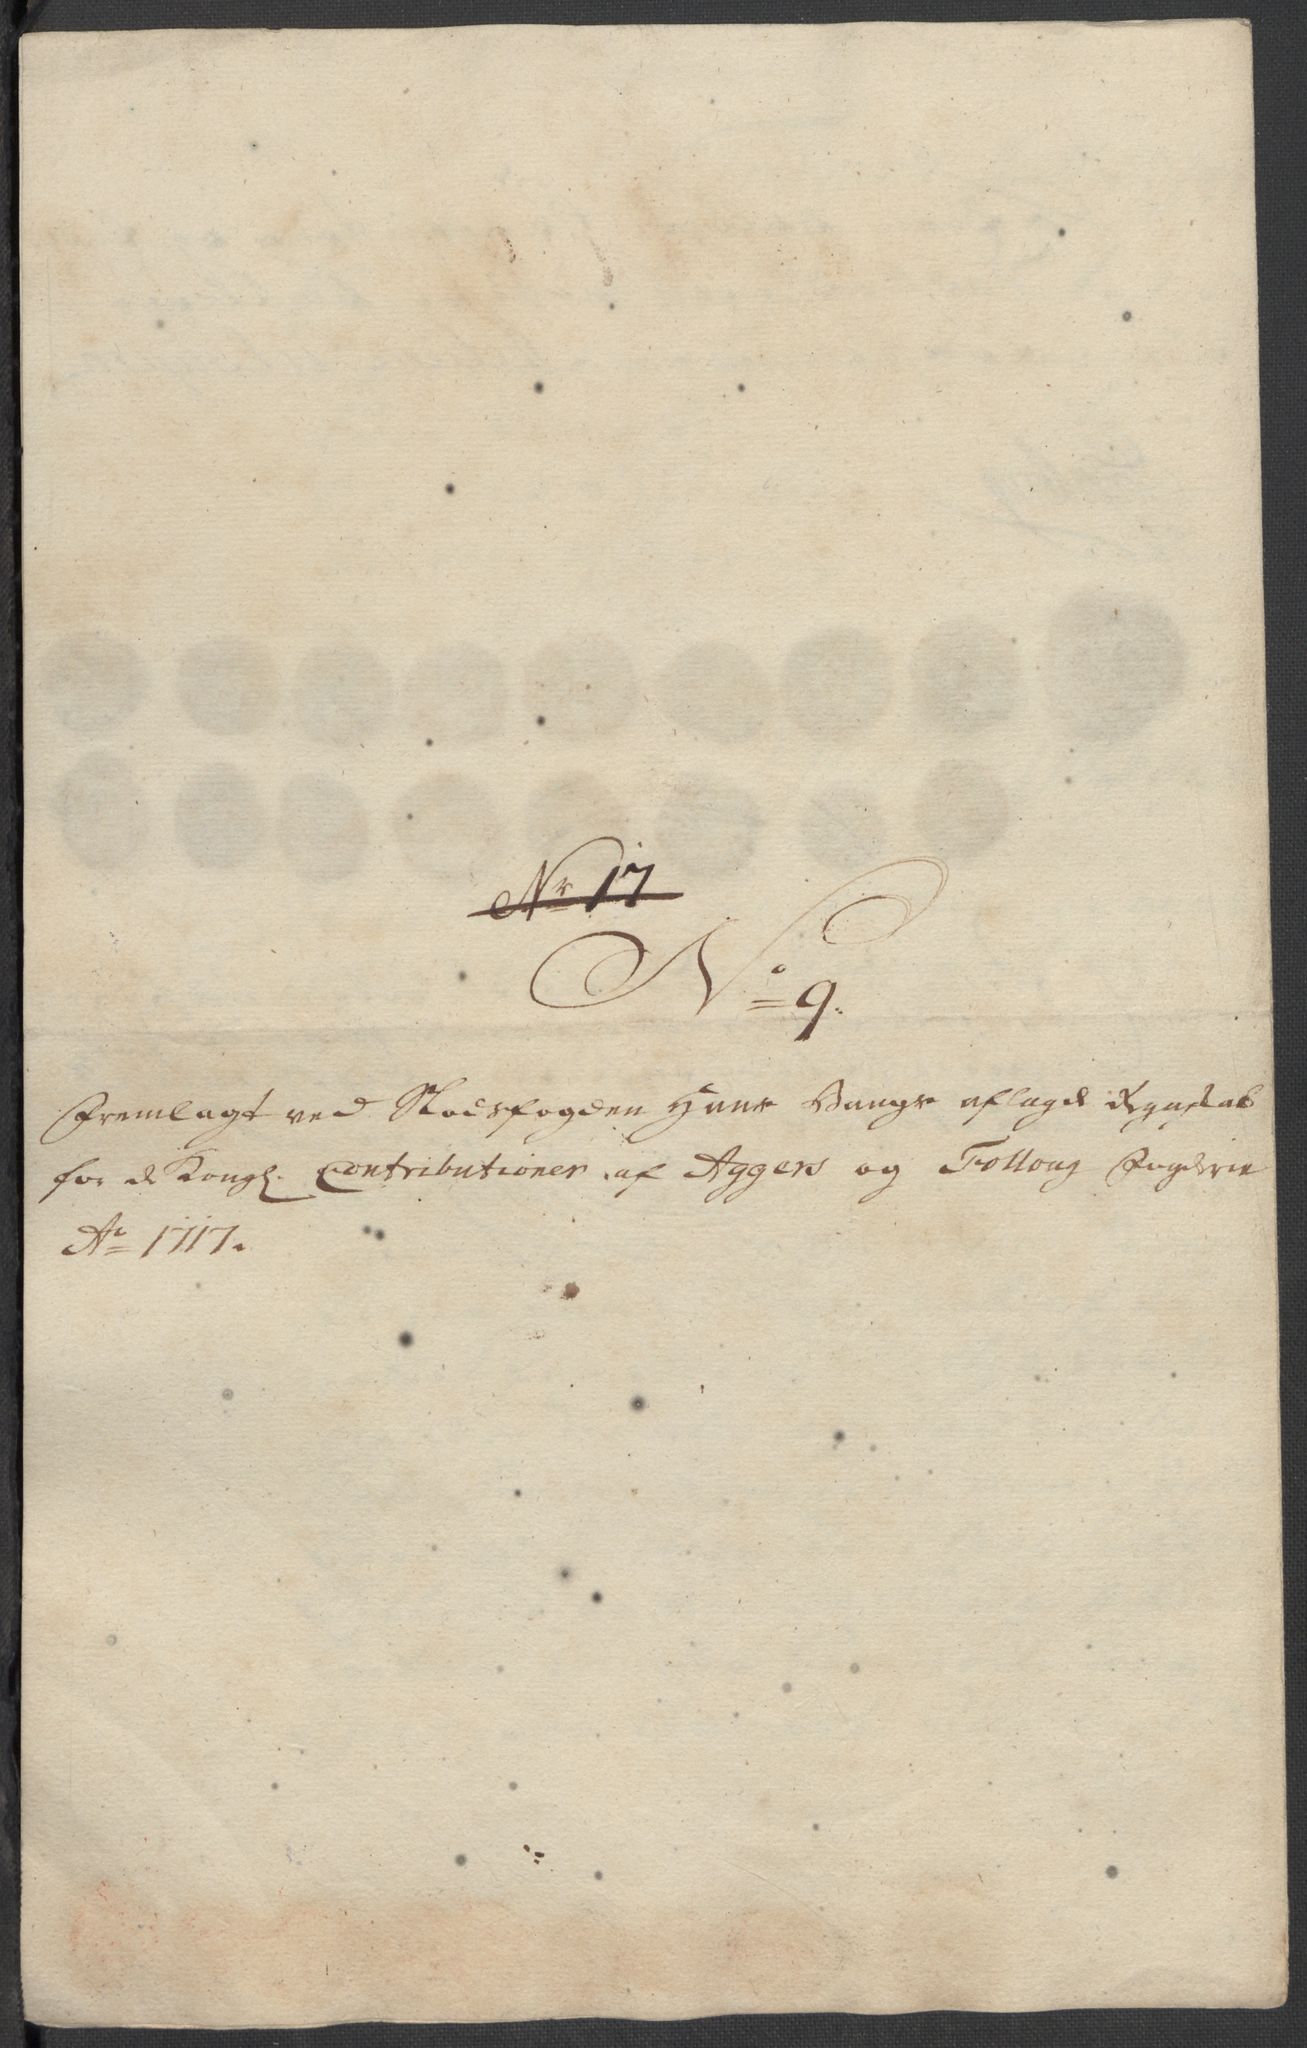 Nr 17
No 9.
Fremlagt ved Slodsfogden Hans Bangs aflagde Regnskab
for de Kongl. Contributioner af Aggers og Folloug Fogderie
Ao 1717.